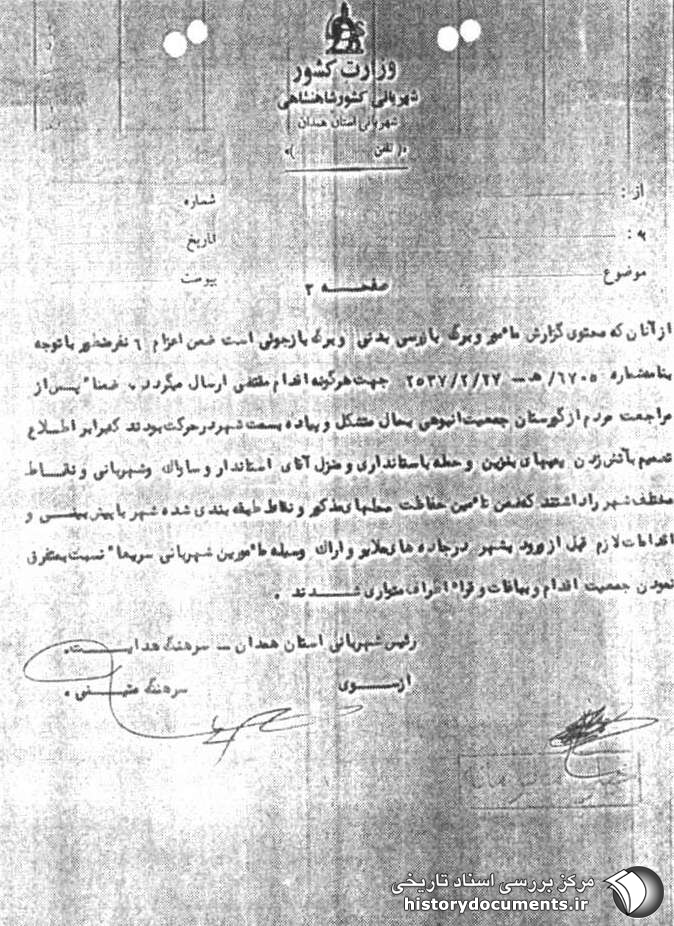 وزارت کشور
شهربانی کشور شاهنشاهی
شهربانی استان همدان
(تلفن )
از :
شماره
به :
تاریخ
موضوع
پیوست
صفحه ۲
از آنان که محتوی گزارش مامور و برگ بازرسی بدنی و برگ بازجوئی است ضمن اعزام ٦ نفر منظور با توجه
بنامه شماره ٦٧٠٥/هـ ـ ٢٥٣٧/٢/٢٧ جهت هرگونه اقدام مقتضی ارسال میگردد . ضمنا" پس از
مراجعت مردم از گورستان جمعیت انبوهی بحال متشکل و پیاده بسمت شهر در حرکت بودند که برابر اطلاع
تصمیم بآتش زدن پمپهای بنزین و حمله باستانداری و منزل آقای استاندار و ساواک و شهربانی و نقاط
مختلف شهر را داشتند که ضمن تامین حفاظت محلهای مذکور و نقاط طبقه بندی شده شهر با پیش بینی و
اقدامات لازم قبل از ورود بشهر در جاده های ملایر و اراک وسیله مامورین شهربانی سریعا" نسبت بمتفرق
نمودن جمعیت اقدام و بباغات و قراء اطراف متواری شدند .
رئیس شهربانی استان همدان ـ سرهنگ هدایت.
از سوی سرهنگ
مرکز بررسی اسناد تاریخی
historydocuments.ir